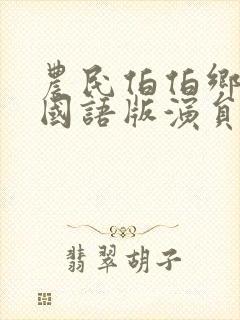 農民伯伯鄉
國語版演員
翡翠胡子